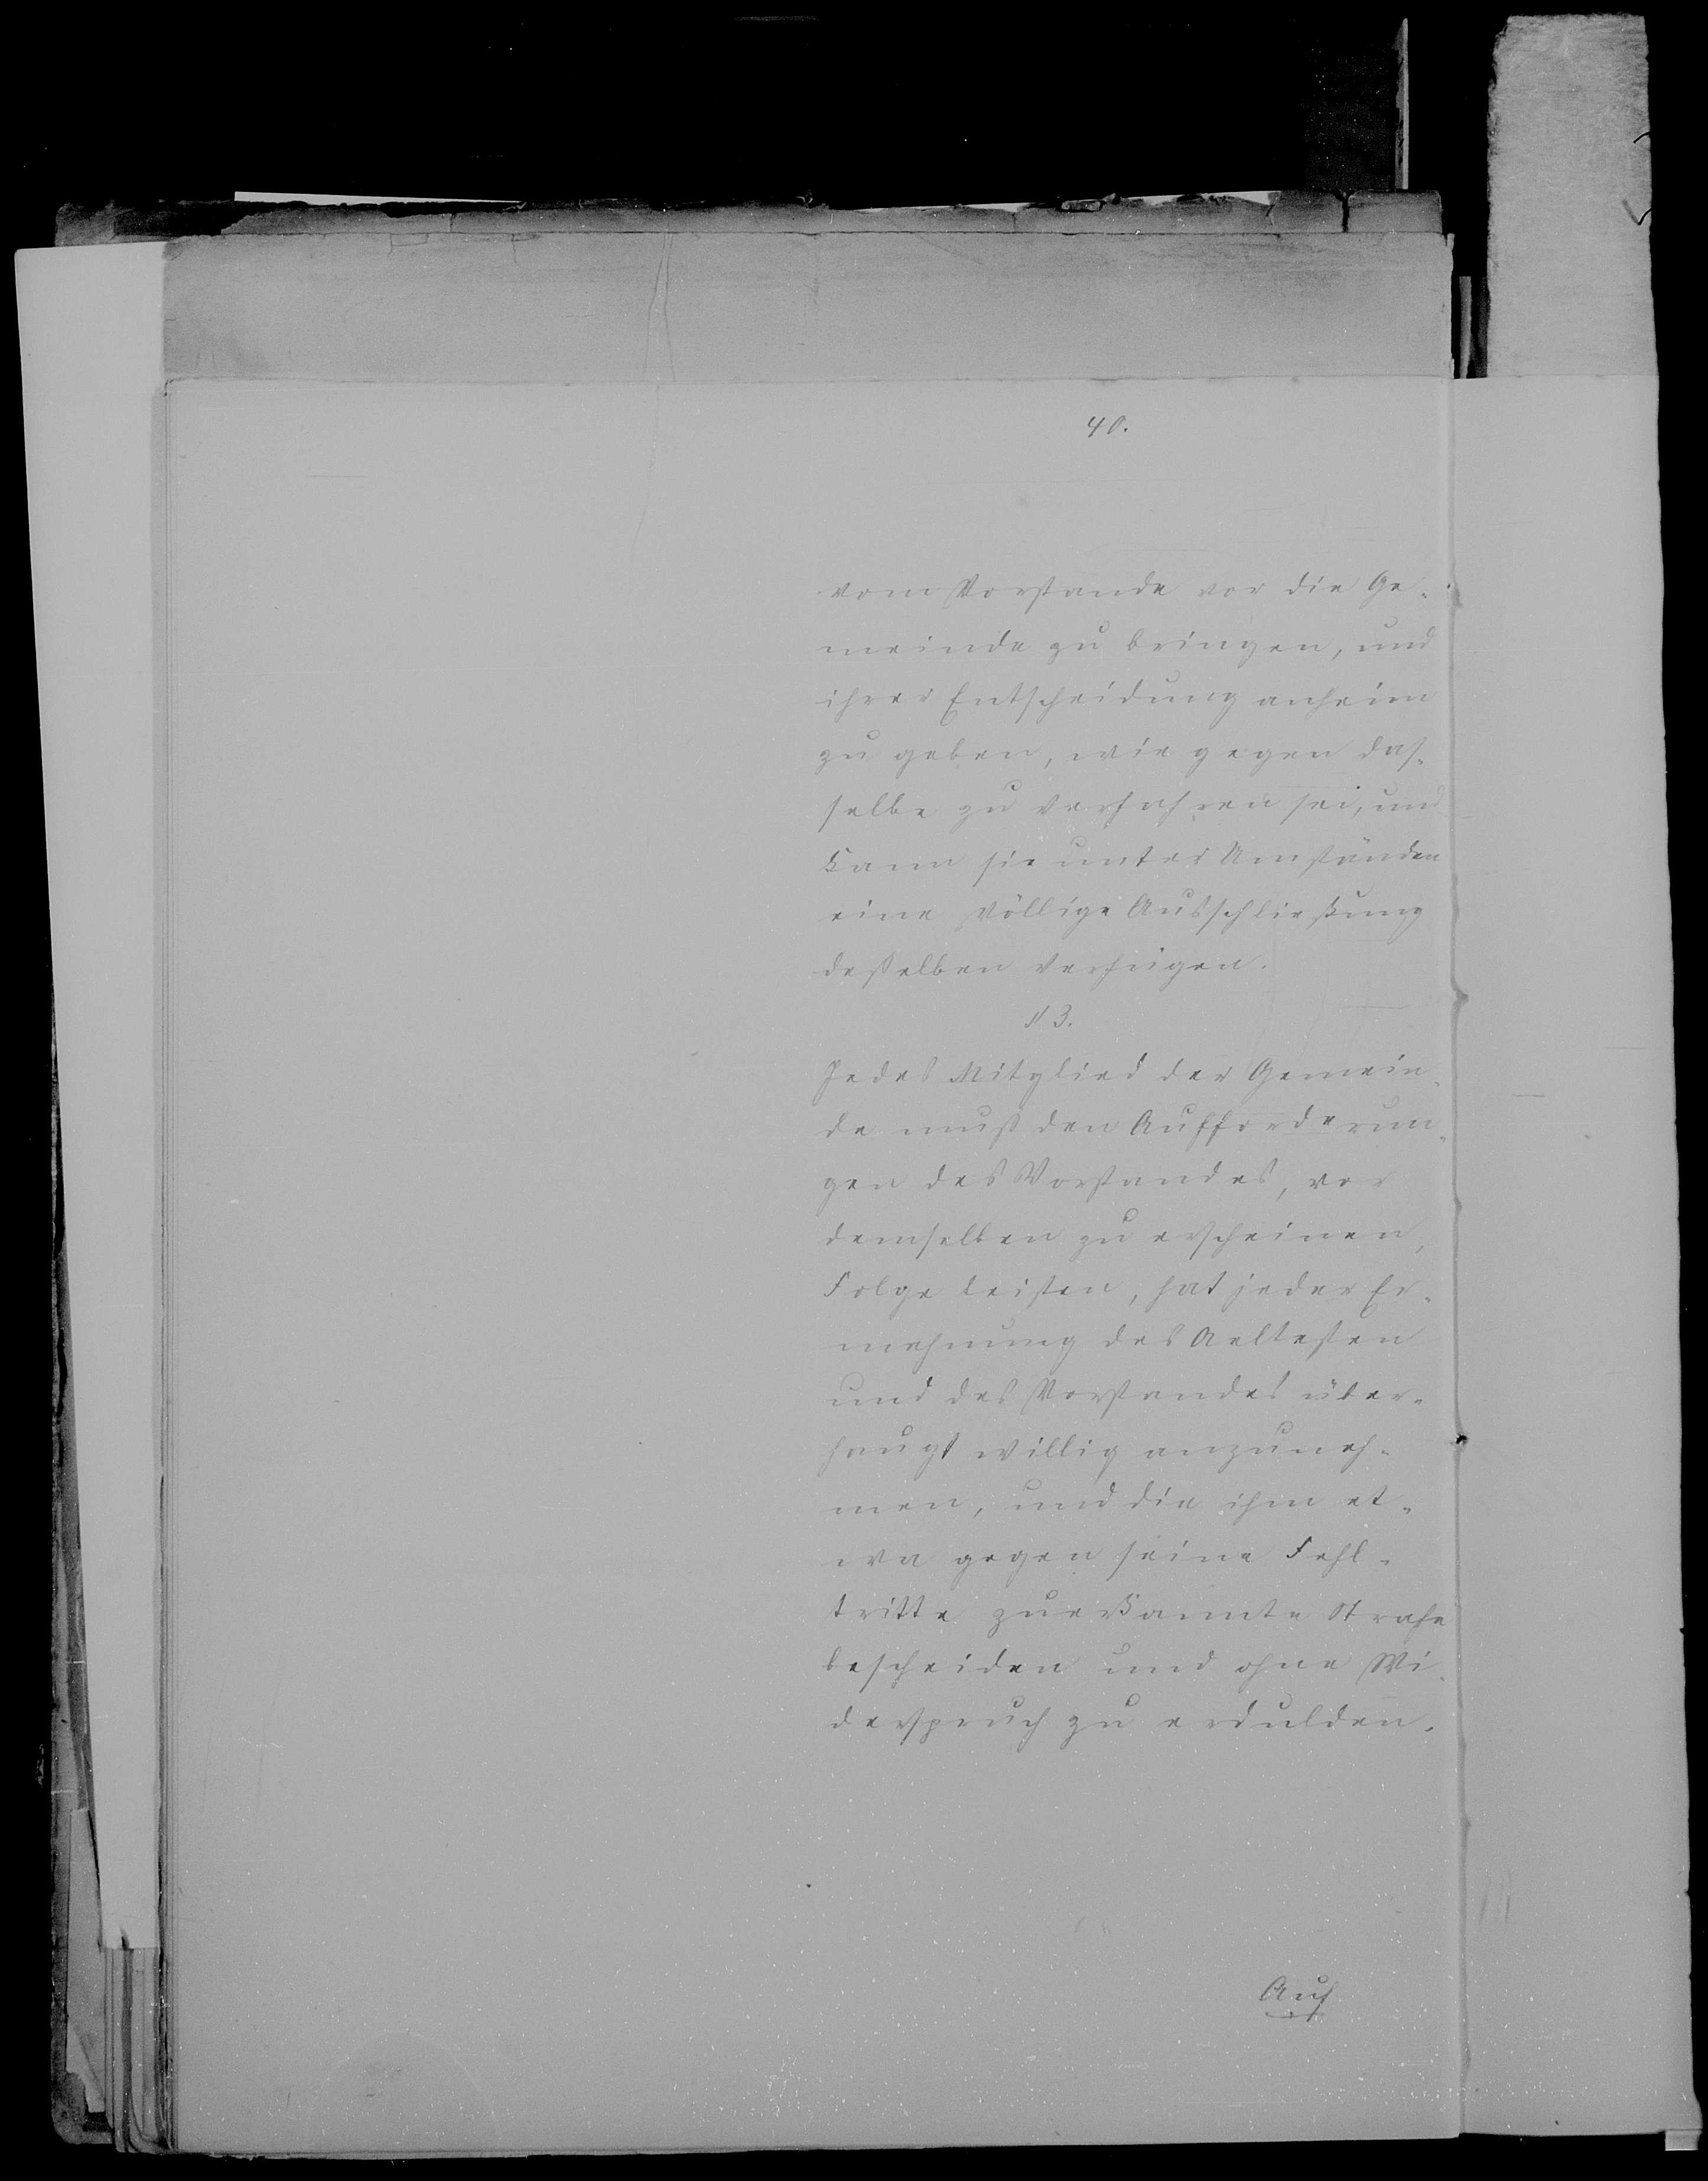 40.
vom Vorstande vor die Ge-
meinde zu bringen, und
ihrer Entscheidung anheim
zu geben, wie gegen das-
selbe zu verfahren sei, und
kann sie unter Umständen
eine völlige Ausschließung
desselben verfügen.
§ 3.
Jedes Mitglied der Gemein-
de muß den Aufforderun-
gen des Vorstandes, vor
demselben zu erscheinen,
Folge leisten, hat jeder Er-
mahnung des Aeltesten
und des Vorstandes über-
haupt willig anzuneh-
men, und die ihm et-
wa gegen seine Fehl-
tritte zuerkannte Strafe
bescheiden und ohne Wi-
derspruch zu erdulden.
Auf